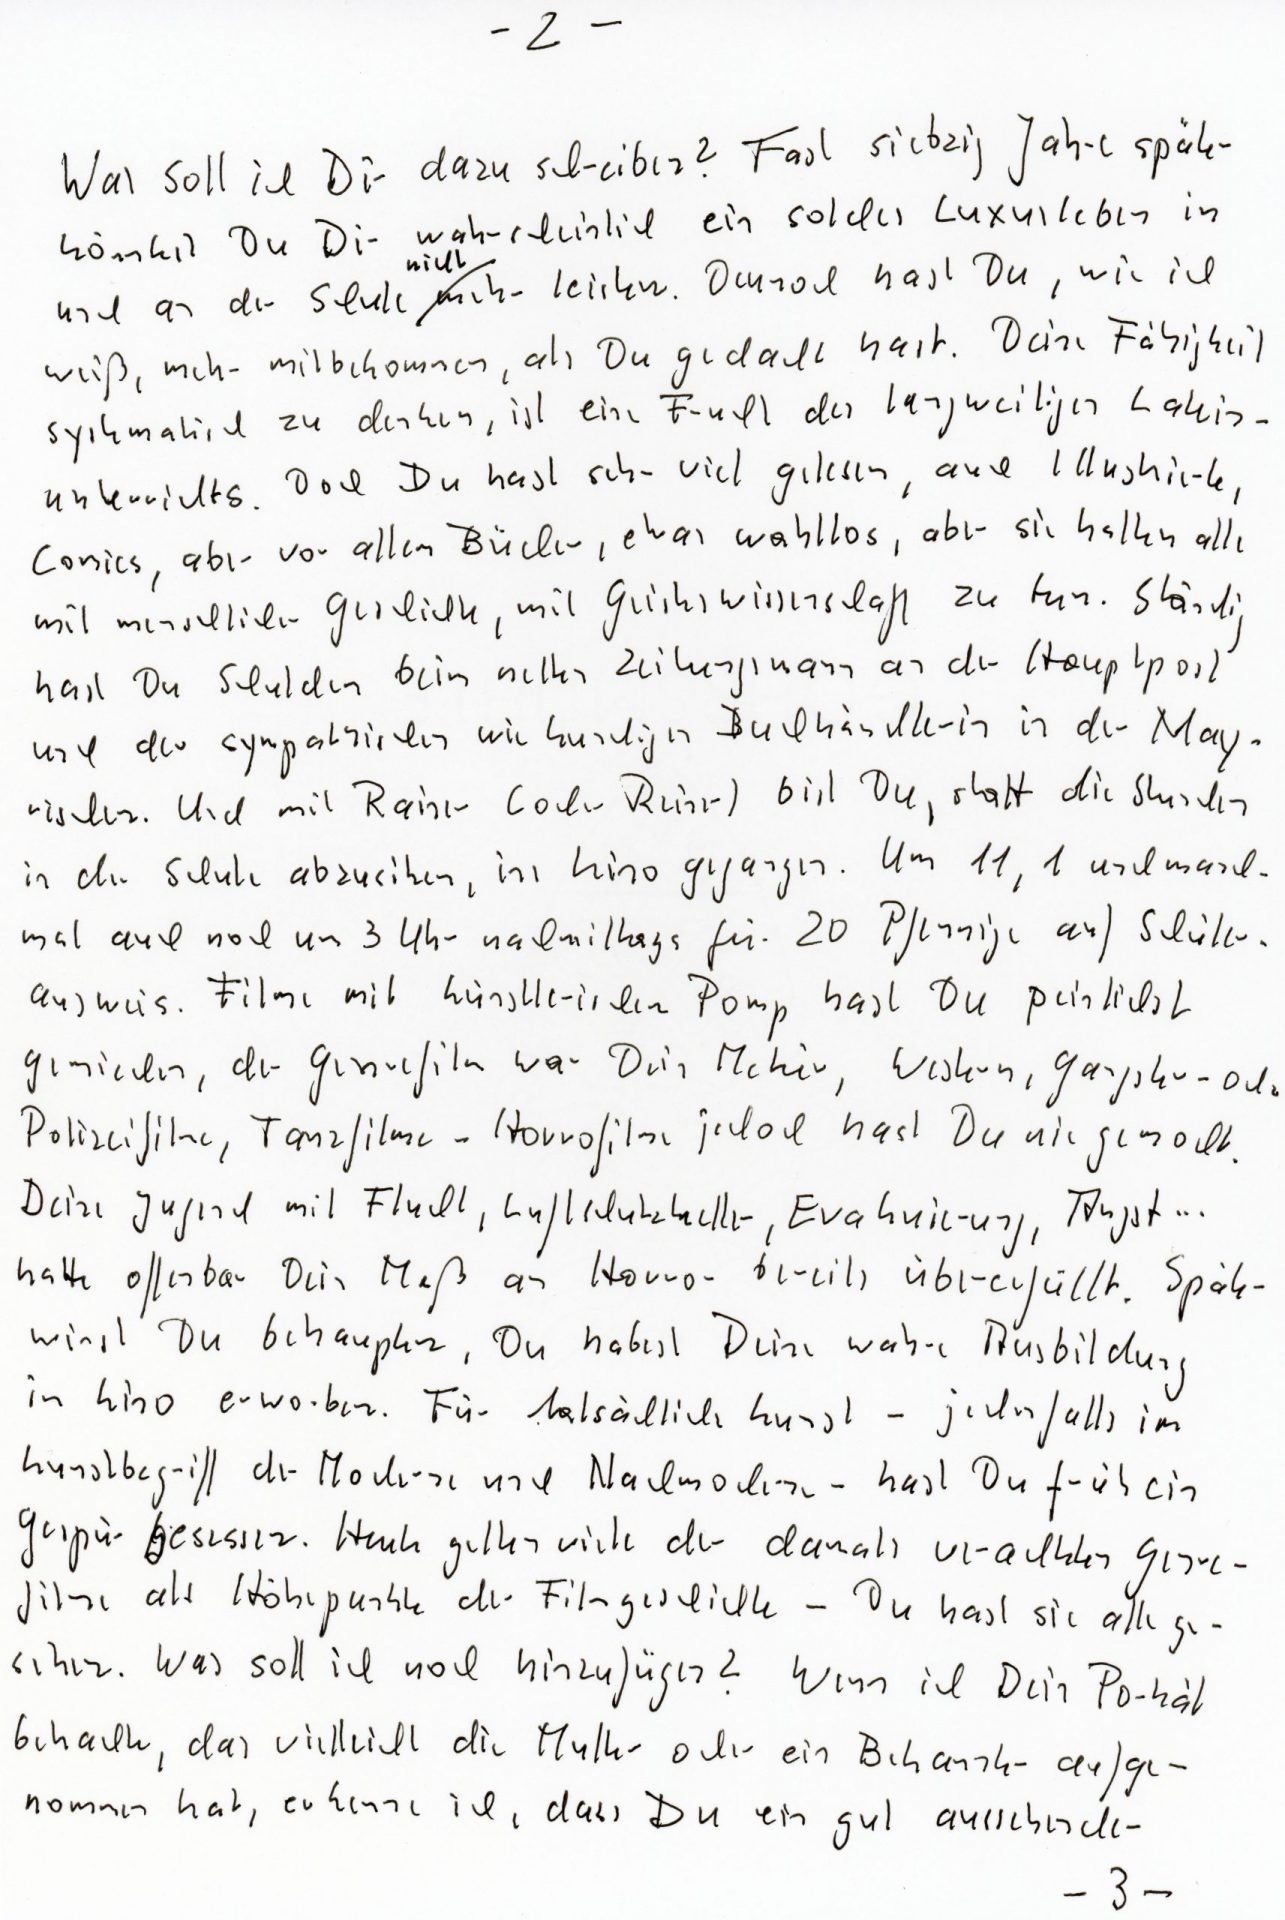 - 2 -
Was soll ich Dir dazu schreiben? Fast siebzig Jahre später
könntest Du Dir wahrscheinlich ein solches Luxusleben in
nicht
und an der Schule mehr leisten. Dennoch hast Du, wie ich
weiß, mehr mitbekommen, als Du gedacht hast. Deine Fähigkeit
systematisch zu denken, ist eine Frucht des langweiligen Latein-
unterrichts. Doch Du hast sehr viel gelesen, auch Illustrierte,
Comics, aber vor allem Bücher, etwas wahllos, aber sie hatten alle
mit menschlicher Geschichte, mit Geisteswissenschaft zu tun. Ständig
hast Du Schulden beim netten Zeitungsmann an der Hauptpost
und der sympathischen wie kundigen Buchhändlerin in der May-
rischen. Und mit Rainer (oder Reiner) bist Du, statt die Stunden
in der Schule abzusitzen, ins Kino gegangen. Um 11, 1 und manch-
mal auch noch um 3 Uhr nachmittags für 20 Pfennige auf Schüler-
ausweis. Filme mit künstlerischem Pomp hast Du peinlichst
gemieden, der Genrefilm war Dein Metier, Western, Gangster- oder
Polizeifilme, Tanzfilme - Horrorfilme jedoch hast Du nie gemocht.
Deine Jugend mit Flucht, Luftschutzkeller, Evakuierung, Angst ...
hatte offenbar Dein Maß an Horror bereits übererfüllt. Später
wirst Du behaupten, Du habest Deine wahre Ausbildung
im Kino erworben. Für tatsächliche Kunst - jedenfalls im
Kunstbegriff der Moderne und Nachmoderne - hast Du früh ein
Gespür besessen. Heute gelten viele der damals verachteten Genre-
filme als Höhepunkte der Filmgeschichte - Du hast sie alle ge-
sehen. Was soll ich noch hinzufügen? Wenn ich Dein Porträt
betrachte, das vielleicht die Mutter oder ein Bekannter aufge-
nommen hat, erkenne ich, dass Du ein gut aussehender
- 3 -